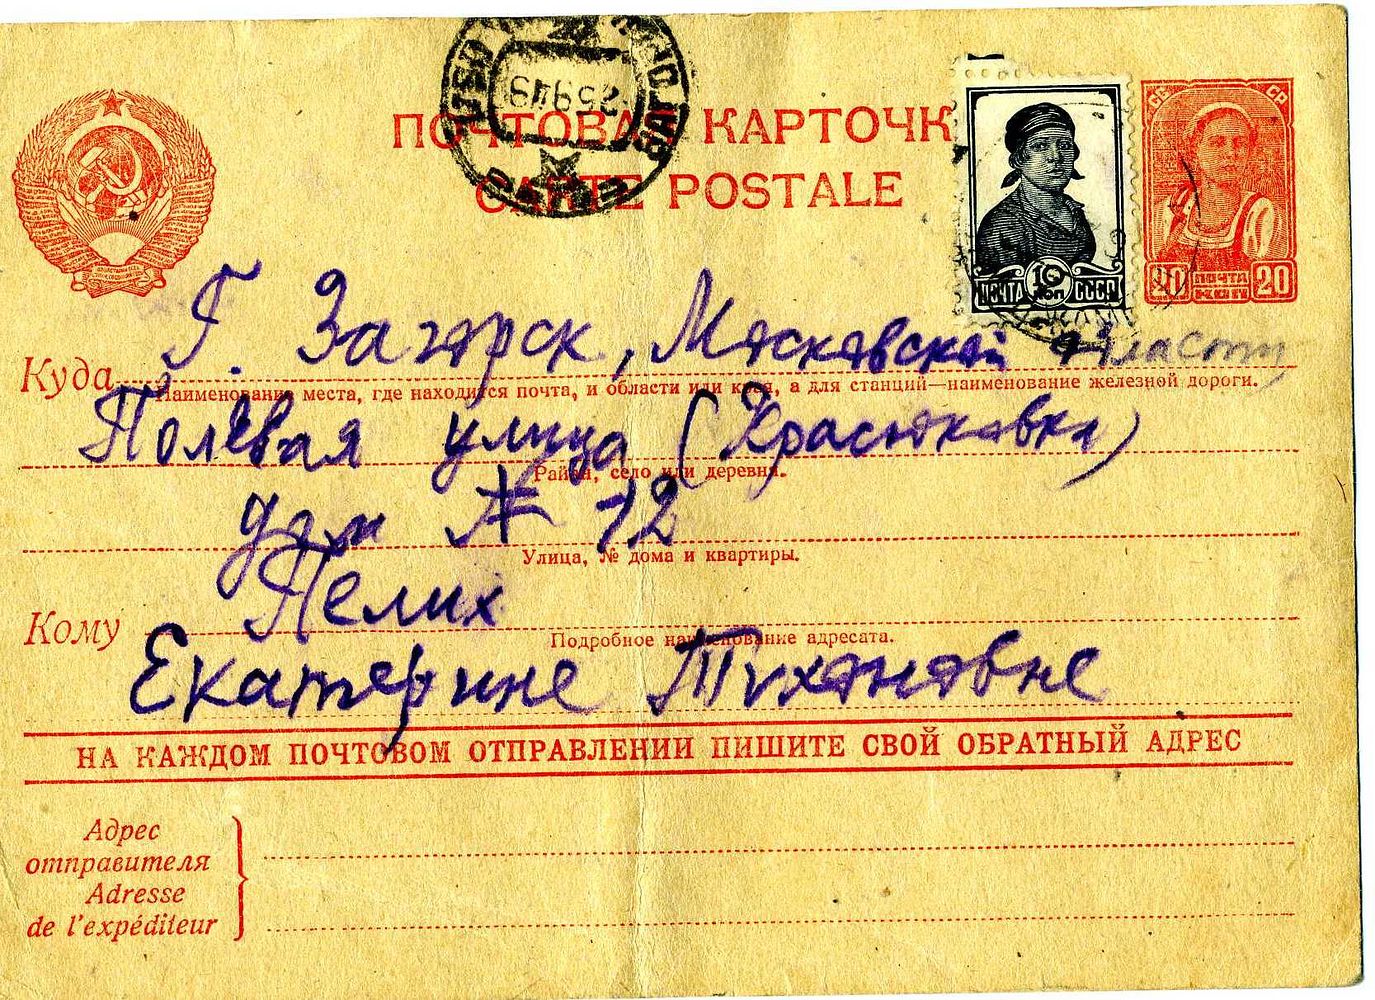 ПОЧТОВАЯ КАРТОЧК
CARTE POSTALE
25 9 48
ПОЧТА 10 КОП СССР
СССР
20 ПОЧТА КОП 20
Куда
Г. Загорск, Московской области
Наименование места, где находится почта, и области или края, а для станций—наименование железной дороги.
Полевая улица (Красюковка)
Район, село или деревня.
дом № 12
Улица, № дома и квартиры.
Пелих
Кому
Подробное наименование адресата.
Екатерине Тихоновне
НА КАЖДОМ ПОЧТОВОМ ОТПРАВЛЕНИИ ПИШИТЕ СВОЙ ОБРАТНЫЙ АДРЕС
Адрес
отправителя
Adresse
de l'expéditeur